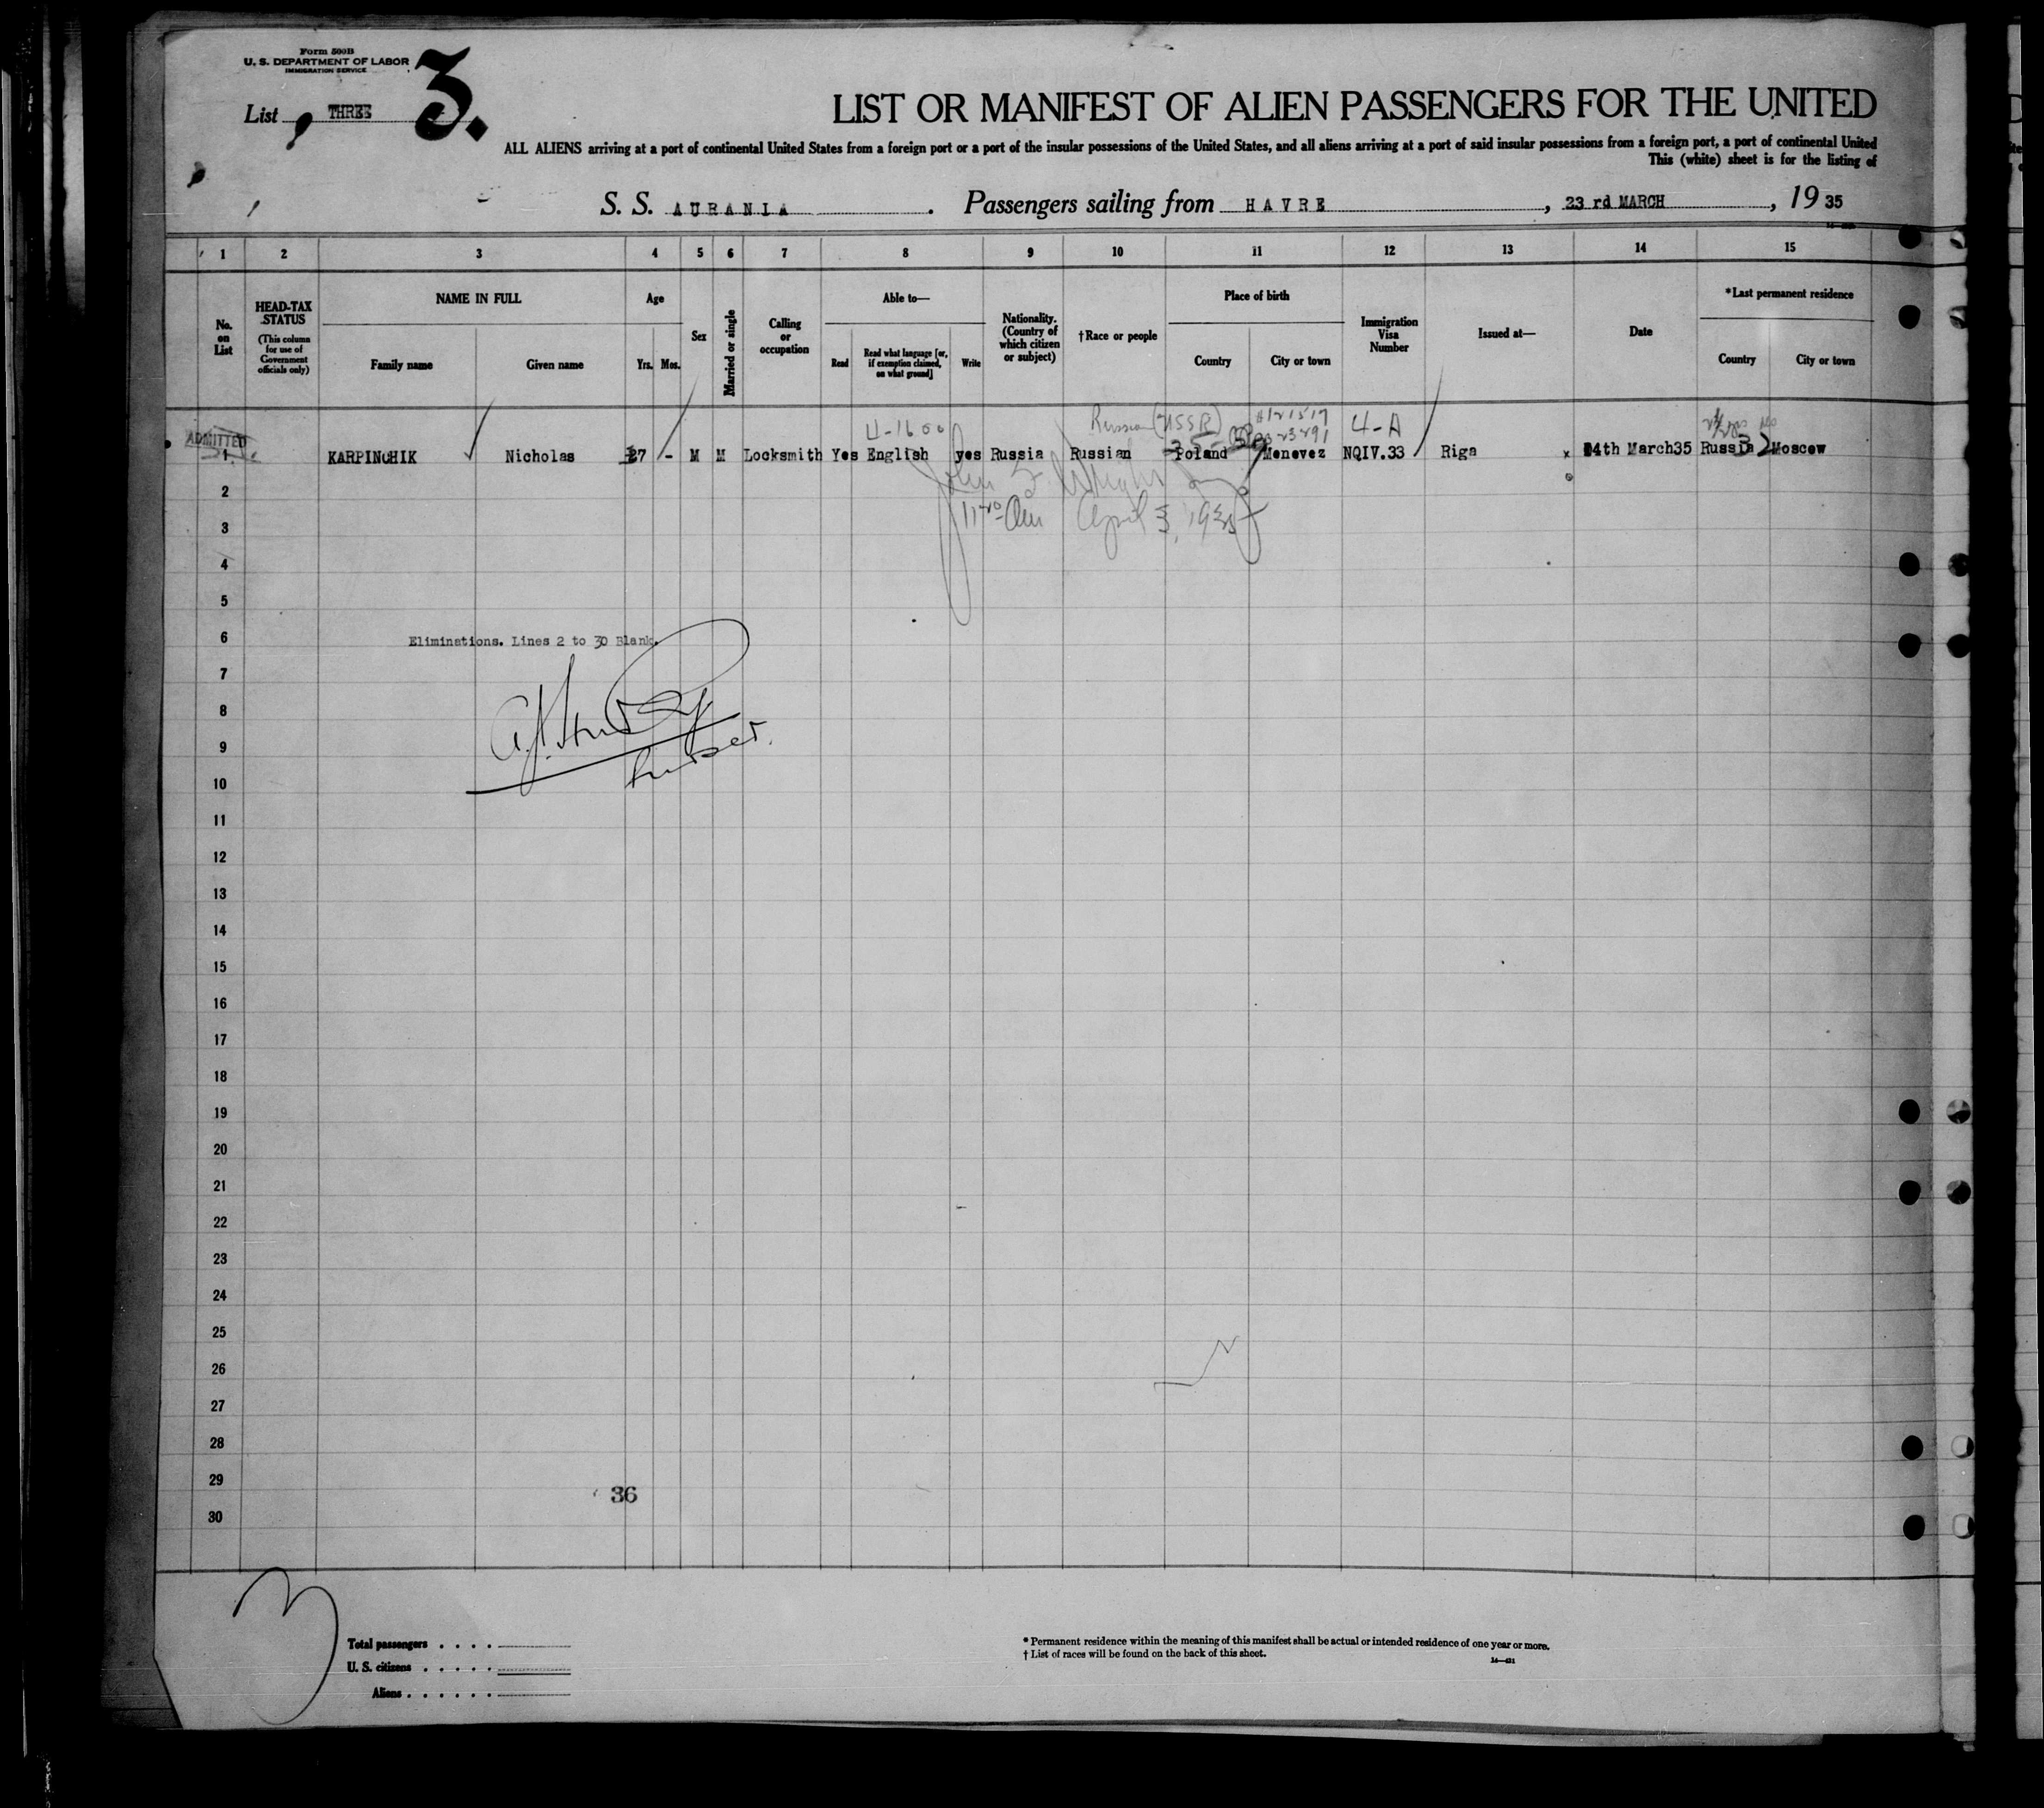 Form 500B
U. S. DEPARTMENT OF LABOR
IMMIGRATION SERVICE
3.
List THREE
LIST OR MANIFEST OF ALIEN PASSENGERS FOR THE UNITED
ALL ALIENS arriving at a port of continental United States from a foreign port or a port of the insular possessions of the United States, and all aliens arriving at a port of said insular possessions from a foreign port, a port of continental United
This (white) sheet is for the listing of
S. S. AURANIA. Passengers sailing from HAVRE, 23 rd MARCH, 19 35
1 2 3 4 5 6 7 8 9 10 11 12 13 14 15
No. on List
HEAD-TAX STATUS (This column for use of Government officials only)
NAME IN FULL
Family name Given name
Age
Yrs. Mos.
Sex
Married or single
Calling or occupation
Able to—
Read Read what language [or, if exemption claimed, on what ground] Write
Nationality. (Country of which citizen or subject)
†Race or people
Place of birth
Country City or town
Immigration Visa Number
Issued at—
Date
*Last permanent residence
Country City or town
4-1600 Russian (USSR) 4-A
ADMITTED
1 KARPINCHIK Nicholas 27 - M M Locksmith Yes English yes Russia Russian Poland Menevez NQIV.33 Riga 14th March35 Russia Moscow
2
April 3, 1935
3
4
5
6
Eliminations. Lines 2 to 30 Blank.
7
8
9
10
11
12
13
14
15
16
17
18
19
20
21
22
23
24
25
26
27
28
29
36
30
3
Total passengers . . . .
U. S. citizens . . . . .
Aliens . . . . . .
* Permanent residence within the meaning of this manifest shall be actual or intended residence of one year or more.
† List of races will be found on the back of this sheet.